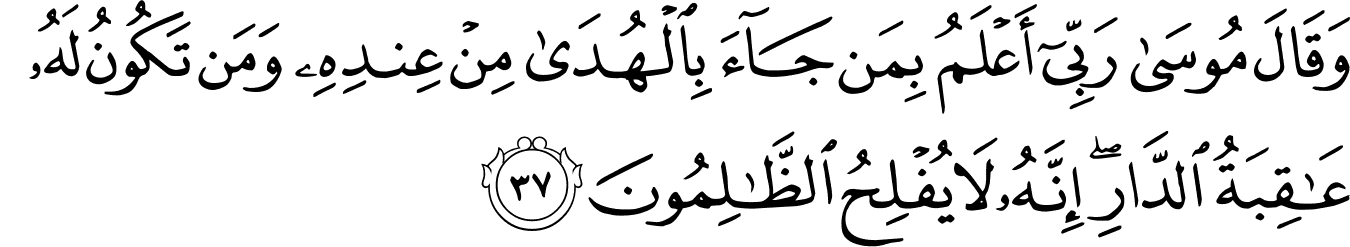 وَقَالَ مُوسَىٰ رَبِّىٓ أَعۡلَمُ بِمَن جَآءَ بِٱلۡهُدَىٰ مِنۡ عِندِهِۦ وَمَن تَكُونُ لَهُۥ
عَـٰقِبَةُ ٱلدَّارِۖ إِنَّهُۥ لَا يُفۡلِحُ ٱلظَّـٰلِمُونَ ٣٧